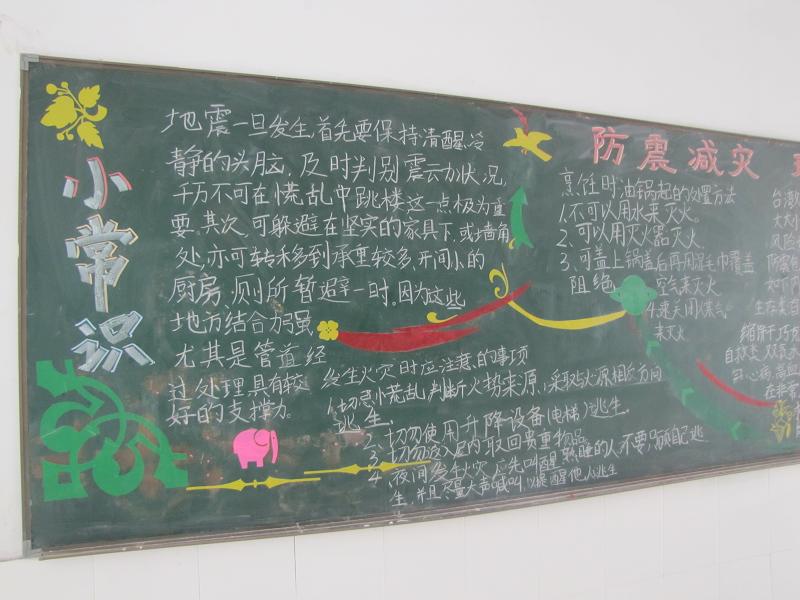 小常识
地震一旦发生,首先要保持清醒、冷
静的头脑,及时判别震动状况,
千万不可在慌乱中跳楼,这一点极为重
要。其次,可躲避在坚实的家具下,或墙角
处,亦可转移到承重较多、开间小的
厨房、厕所暂避一时。因为这些
地方结合力强,
尤其是管道经
过处理,具有较
好的支撑力。
发生火灾时应注意的事项
逃生。
2、切勿使用升降设备(电梯)逃生。
3、切勿返入屋内取回贵重物品。
4、夜间发生火灾,应先叫醒熟睡的人,不要只顾自己逃
生,并且尽量大声喊叫,以提醒他人逃生
防震减灾
烹饪时油锅起火的处置方法
1.不可以用水来灭火。
2.可以用灭火器灭火。
3.可盖上锅盖后再用湿毛巾覆盖
阻绝 空气来灭火
4.速关闭煤气
来灭火